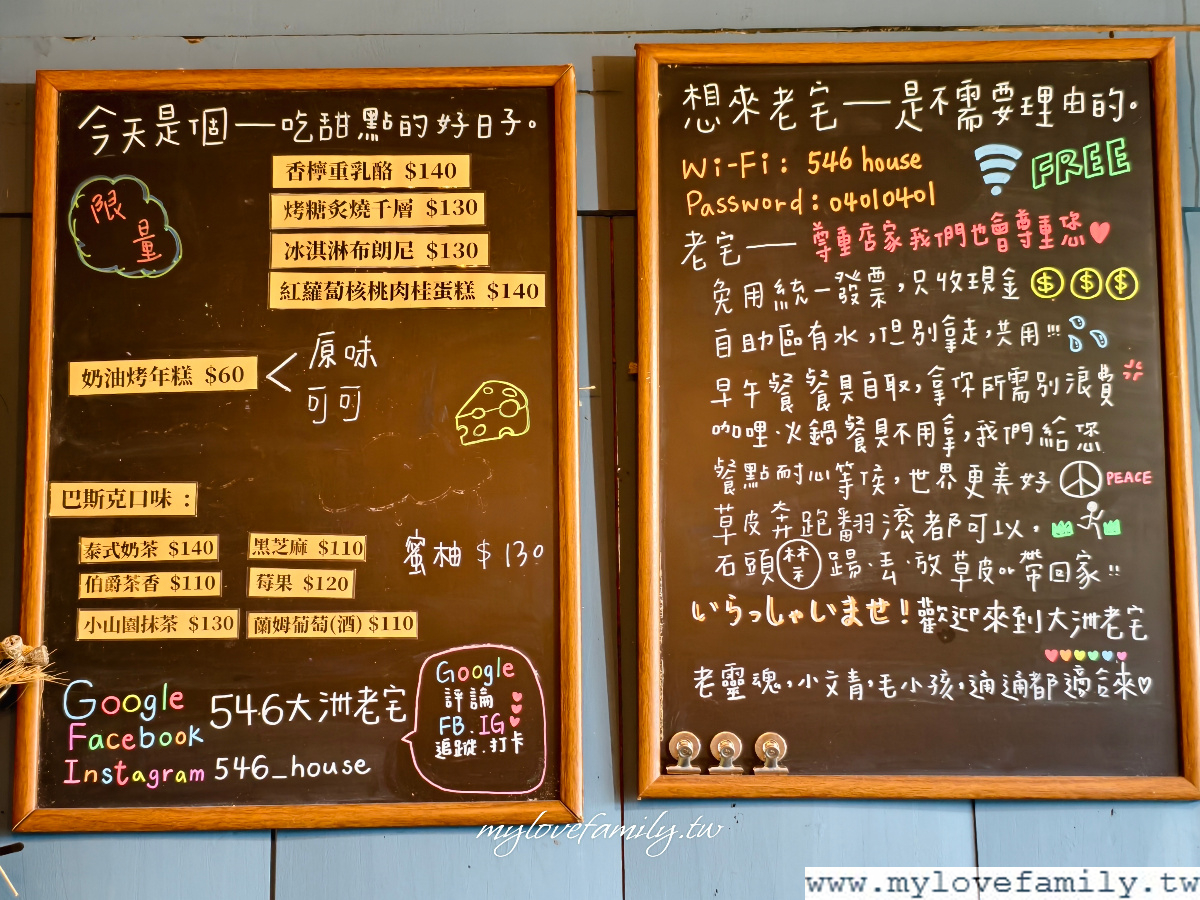 今天是個一吃甜點的好日子。
限量
香檸重乳酪 $140
烤糖炙燒千層 $130
冰淇淋布朗尼 $130
紅蘿蔔核桃肉桂蛋糕 $140
奶油烤年糕 $60
原味
可可
巴斯克口味：
泰式奶茶 $140
黑芝麻 $110
蜜柚 $130
伯爵茶香 $110
莓果 $120
小山園抹茶 $130
蘭姆葡萄(酒) $110
Google
Facebook
Instagram
546大洲老宅
546_house
Google
評論
FB.IG
追蹤.打卡
想來老宅一是不需要理由的。
Wi-Fi：546 house
FREE
Password：04010401
老宅一尊重店家我們也會尊重您
免用統一發票，只收現金 $ $ $
自助區有水，但別拿走，共用!!!
早午餐餐具自取，拿你所需別浪費
咖哩.火鍋餐具不用拿，我們給您
餐點耐心等候，世界更美好 PEACE
草皮奔跑翻滾都可以.
石頭禁踢.丟.放草皮or帶回家!!
いらっしゃいませ！歡迎來到大洲老宅
老靈魂，小文青，毛小孩，通通都適合來♡
mylovefamily.tw
www.mylovefamily.tw